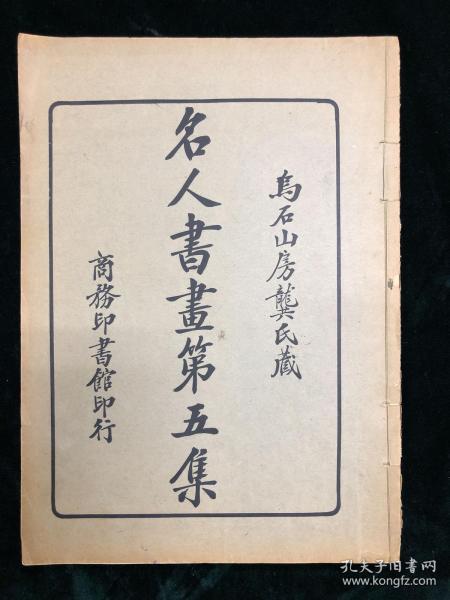 烏石山房龔氏藏
名人書畫第五集
商務印書館印行
孔夫子旧书网
www.kongfz.com